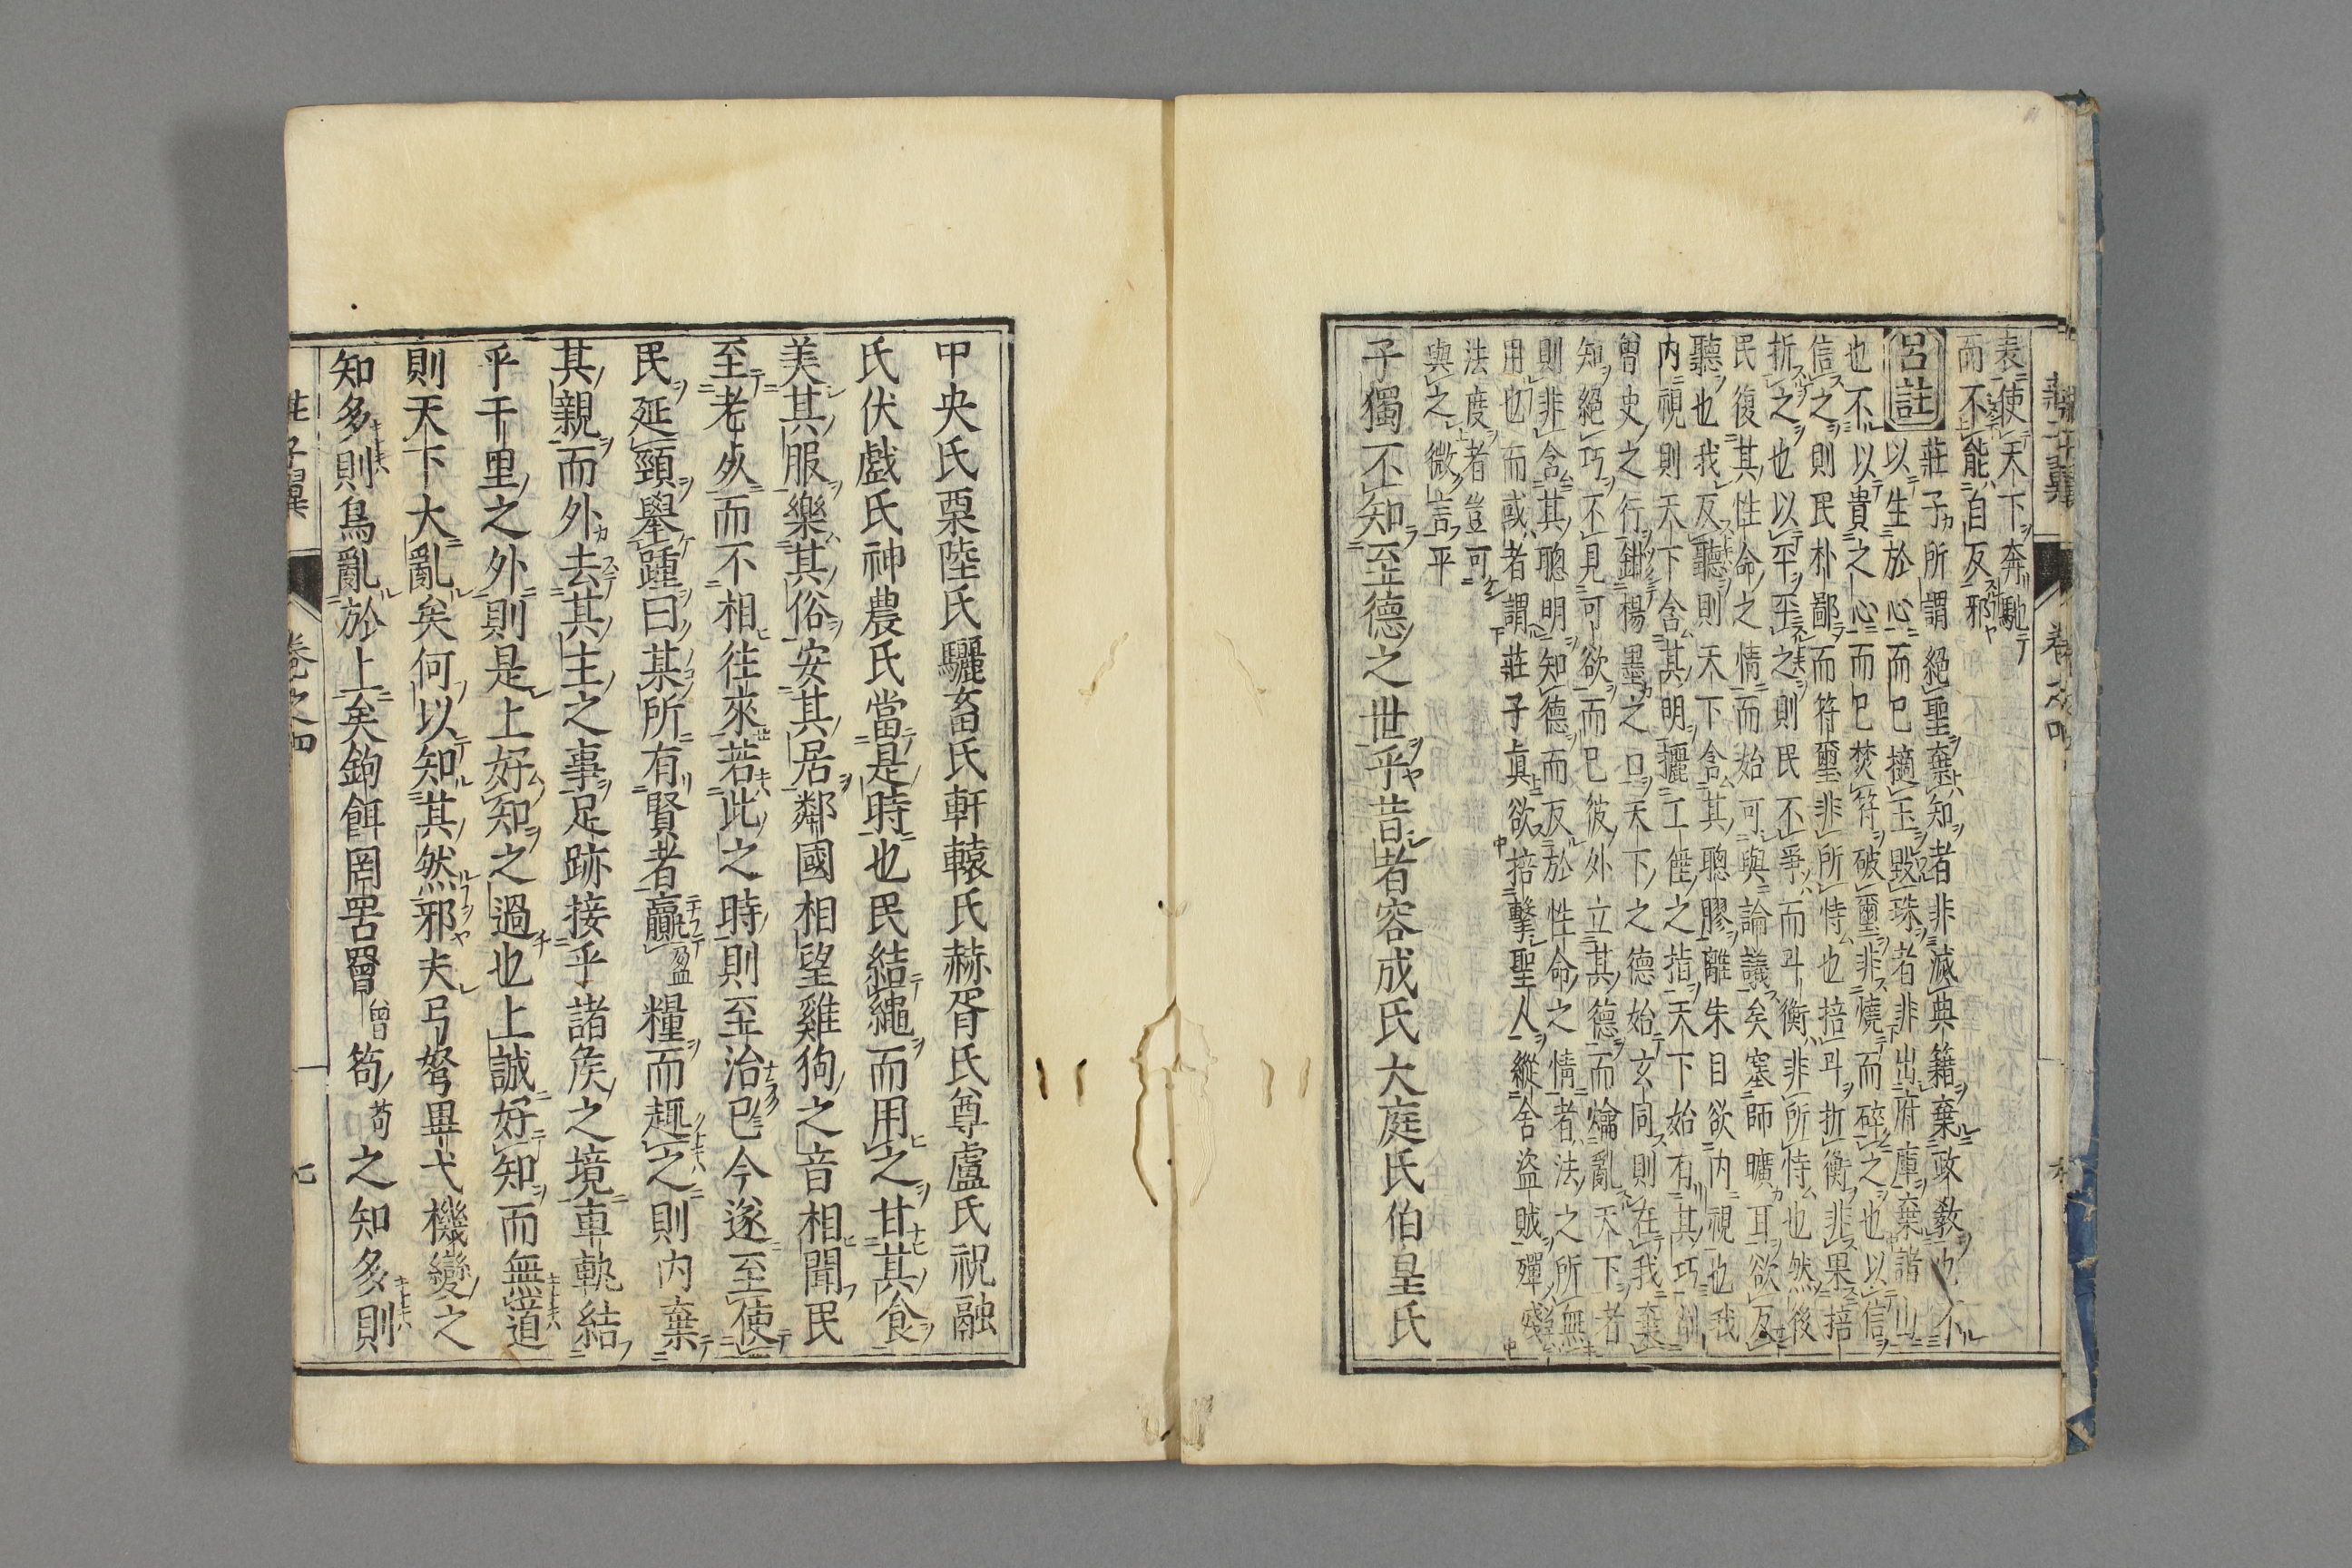 表使天下奔馳
而不能自反邪
呂註 莊子所謂絕聖棄知者非滅典籍棄政教也不
以生於心而已擿玉毀珠者非出府庫棄諸山
也不以貴之心而已焚符破璽非燒而碎之也以信
信之則民朴鄙而符璽非所恃也掊斗折衡非果掊
折之也以平平之則民不爭而斗衡非所恃也然後
民復其性命之情而始可與論議矣塞師曠耳欲反
聽也我反聽則天下含其聰膠離朱目欲內視也我
內視則天下含其明攦工倕之指天下始有其巧削
曾史之行鉗楊墨之口天下之德始玄同則在我棄
知絕巧不見可欲而已彼外立其德而爚亂天下者
則非含其聰明知德而反於性命之情者法之所無
用也而或者謂莊子真欲掊擊聖人縱舍盜賊殫殘
法度者豈可
與之微言乎
子獨不知至德之世乎昔者容成氏大庭氏伯皇氏
中央氏栗陸氏驪畜氏軒轅氏赫胥氏尊盧氏祝融
氏伏戲氏神農氏當是時也民結繩而用之甘其食
美其服樂其俗安其居鄰國相望雞狗之音相聞民
至老死而不相往來若此之時則至治已今遂至使
民延頸舉踵曰某所有賢者贏盈糧而趣之則內棄
其親而外去其主之事足跡接乎諸侯之境車軌結
乎千里之外則是上好知之過也上誠好知而無道
則天下大亂矣何以知其然邪夫弓弩畢弋機變之
知多則鳥亂於上矣鉤餌罔罟罾曾笱苟之知多則